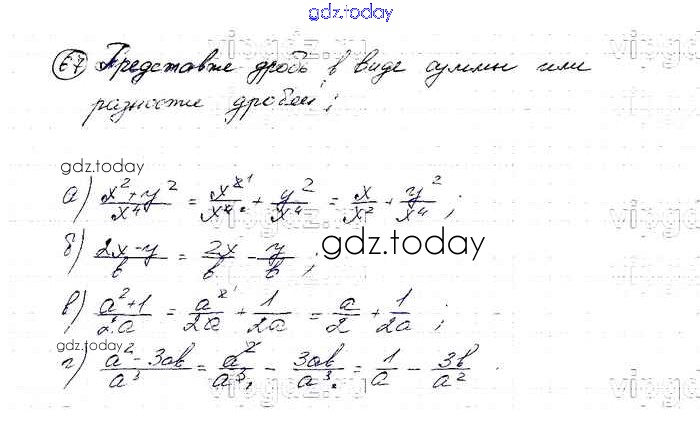 gdz.today
67 Представьте дробь в виде суммы или
разности дробей;
gdz.today
а) (x² + y²)/x⁴ = x²/x⁴ + y²/x⁴ = x/x² + y²/x⁴ ;
б) (2x - y)/b = 2x/b - y/b ;
gdz.today
в) (a² + 1)/2a = a²/2a + 1/2a = a/2 + 1/2a ;
г) (a² - 3ab)/a³ = a²/a³ - 3ab/a³ = 1/a - 3b/a²
gdz.today